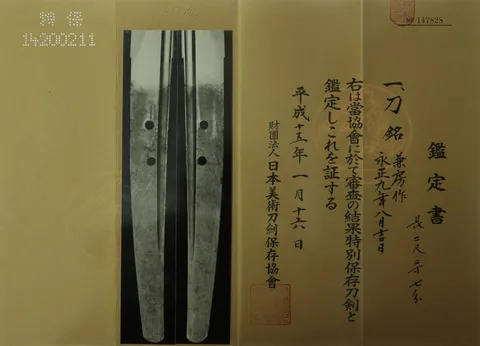 特保
14200211
No 147828
鑑定書
一、刀 銘 兼房作
永正九年八月吉日
長二尺二寸七分
右は當協會に於て審査の結果特別保存刀剣と
鑑定しこれを証する
平成十五年一月十六日
財團法人日本美術刀剣保存協會